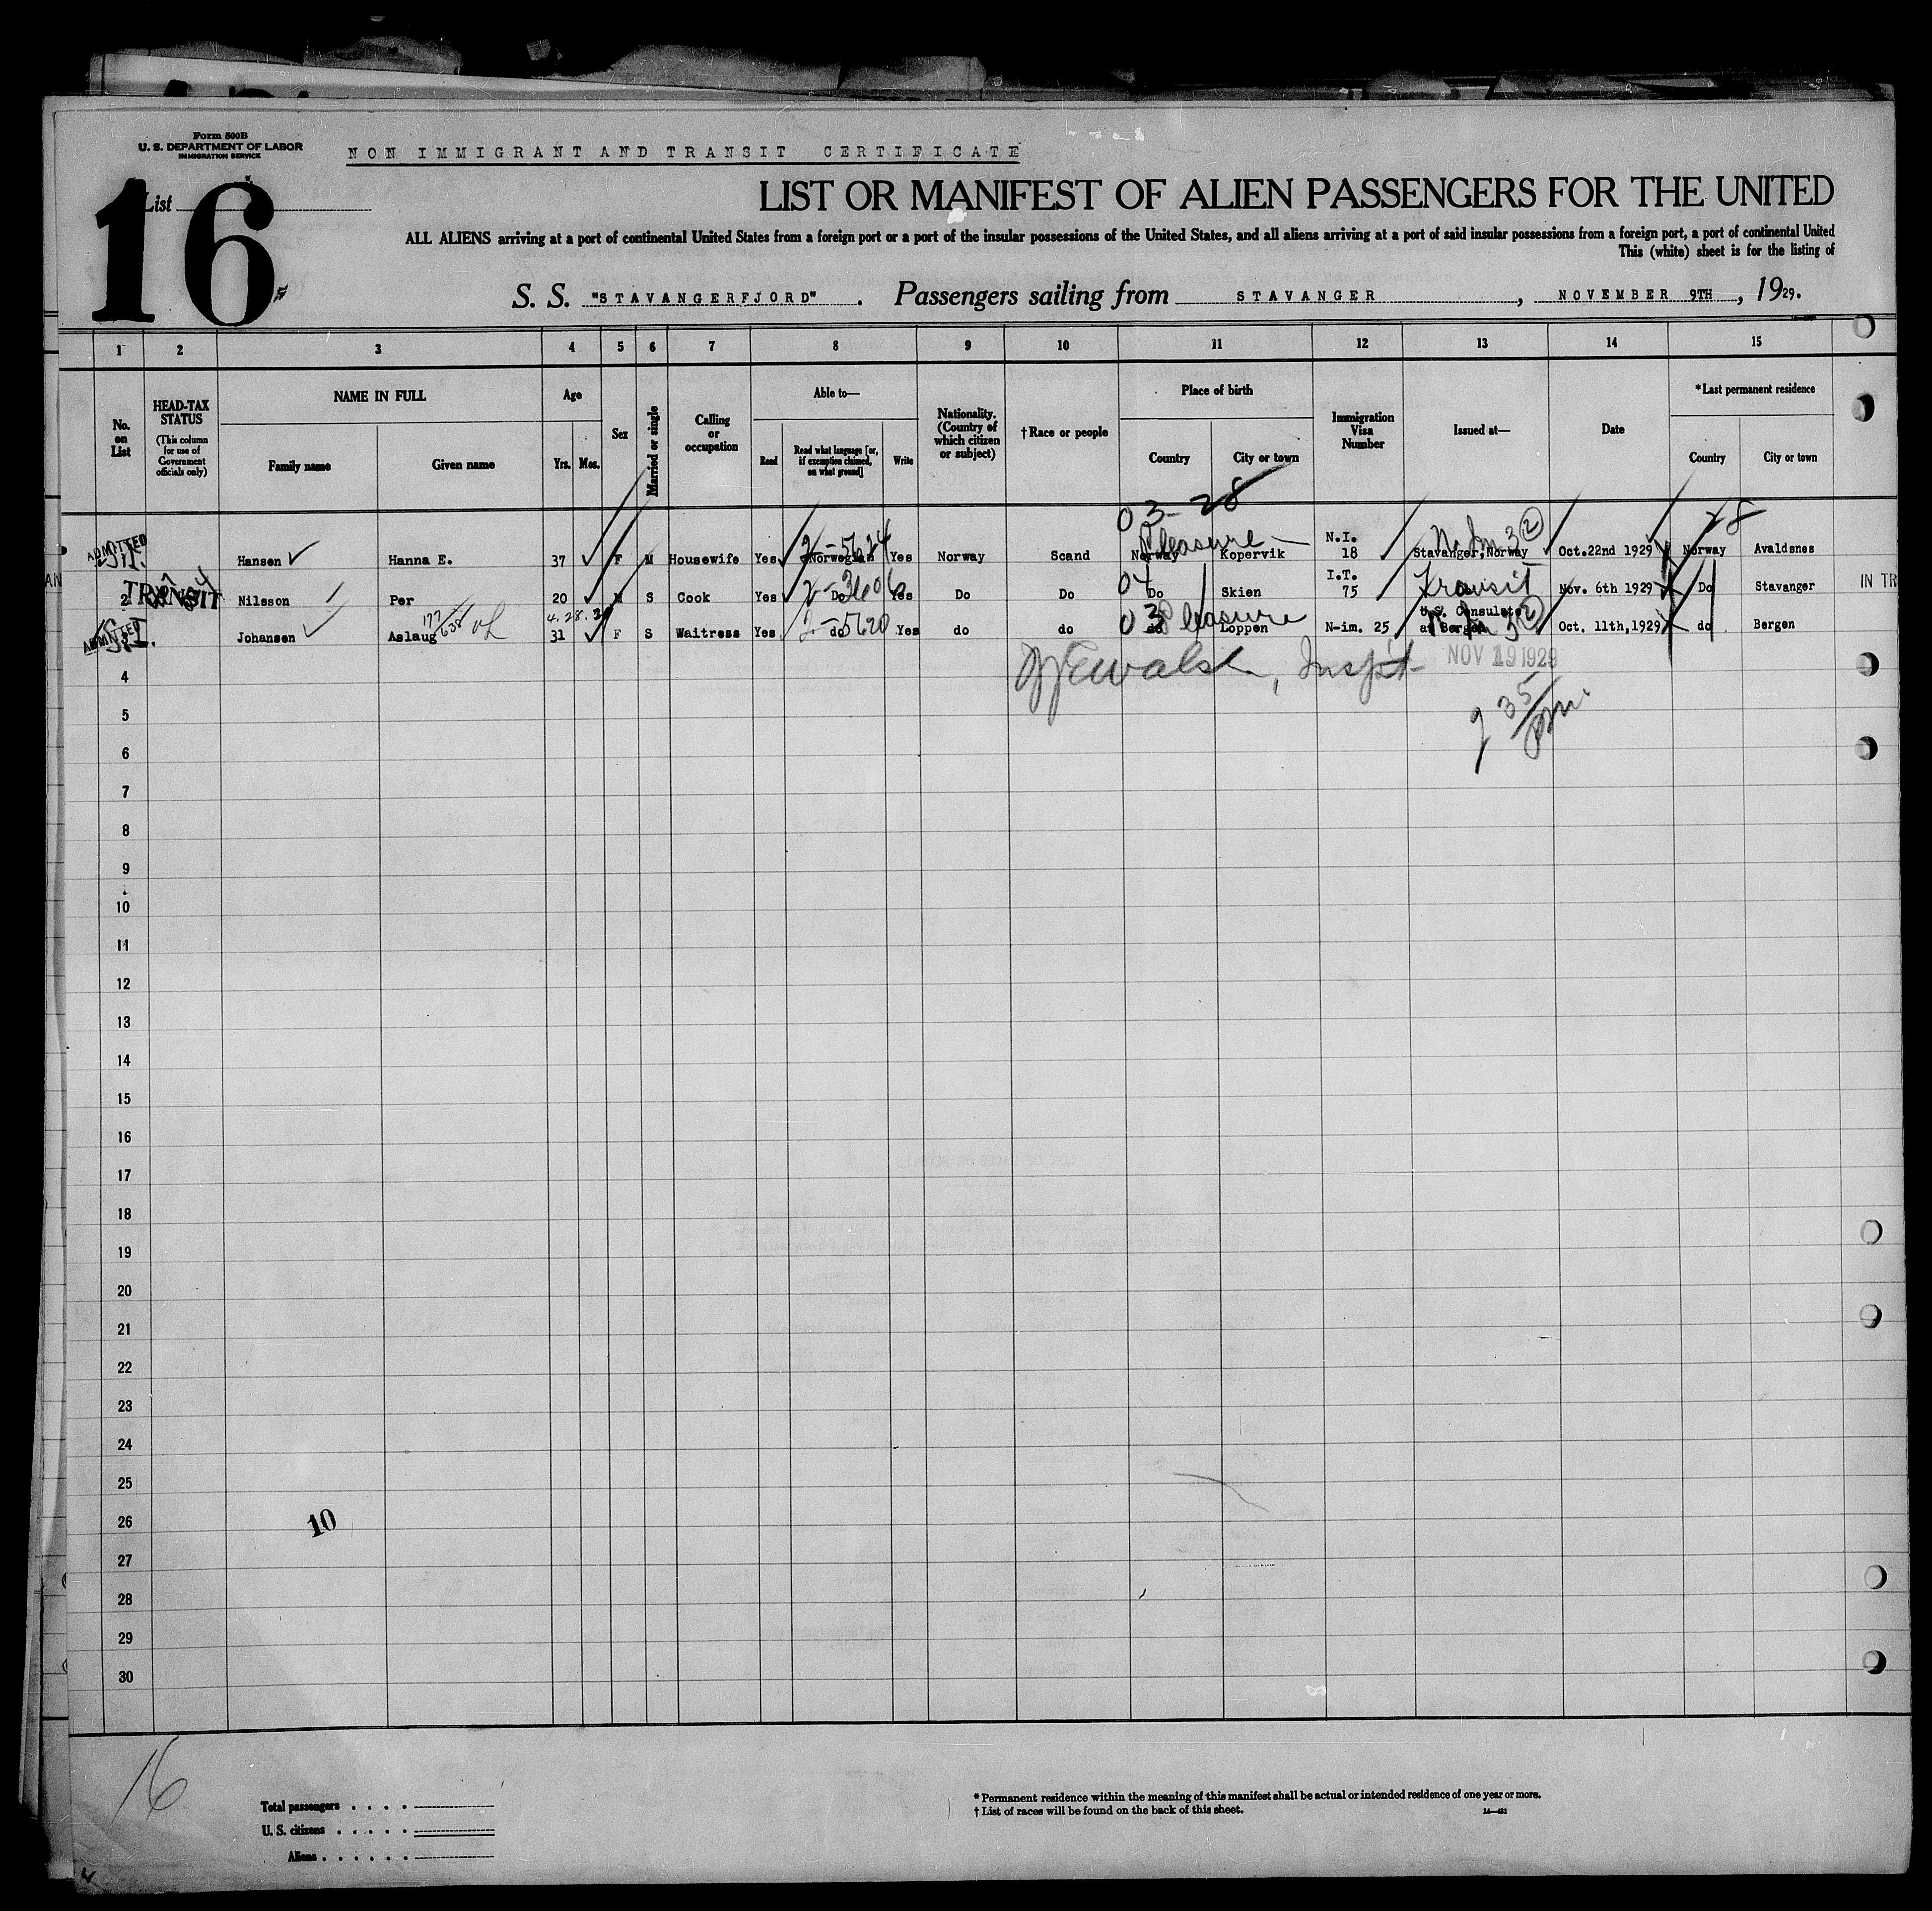 Form 500B
U. S. DEPARTMENT OF LABOR
IMMIGRATION SERVICE
NON IMMIGRANT AND TRANSIT CERTIFICATE
List
16
LIST OR MANIFEST OF ALIEN PASSENGERS FOR THE UNITED
ALL ALIENS arriving at a port of continental United States from a foreign port or a port of the insular possessions of the United States, and all aliens arriving at a port of said insular possessions from a foreign port, a port of continental United
This (white) sheet is for the listing of
S. S. "STAVANGERFJORD" . Passengers sailing from STAVANGER , NOVEMBER 9TH , 1929.
1 2 3 4 5 6 7 8 9 10 11 12 13 14 15
No. on List
HEAD-TAX STATUS (This column for use of Government officials only)
NAME IN FULL
Family name Given name
Age
Yrs. Mos.
Sex
Married or single
Calling or occupation
Able to—
Read Read what language [or, if exemption claimed, on what ground] Write
Nationality. (Country of which citizen or subject)
†Race or people
Place of birth
Country City or town
Immigration Visa Number
Issued at—
Date
*Last permanent residence
Country City or town
03-28
28
ADMITTED
S.I.
Pleasure
2-5624
N.I.
Hansen Hanna E. 37 F M Housewife Yes Norwegian Yes Norway Scand Norway Kopervik 18 Stavanger,Norway Oct.22nd 1929 Norway Avaldsnes
TRANSIT
04
I.T.
Transit
2 Nilsson Per 20 M S Cook Yes Do Yes Do Do Do Skien 75 Nov. 6th 1929 Do Stavanger
IN TR
177/638
4.28.3
2-5620
03 Pleasure
U.S. Consulate
ADMITTED
S.I.
Johansen Aslaug 31 F S Waitress Yes do Yes do do do Loppen N-im. 25 at Bergen Oct. 11th,1929 do Bergen
Inspt
NOV 19 1929
9 35/pm
4
5
6
7
8
9
10
11
12
13
14
15
16
17
18
19
20
21
22
23
24
25
26
10
27
28
29
30
16
Total passengers . . . .
U. S. citizens . . . . .
Aliens . . . . . .
* Permanent residence within the meaning of this manifest shall be actual or intended residence of one year or more.
† List of races will be found on the back of this sheet.